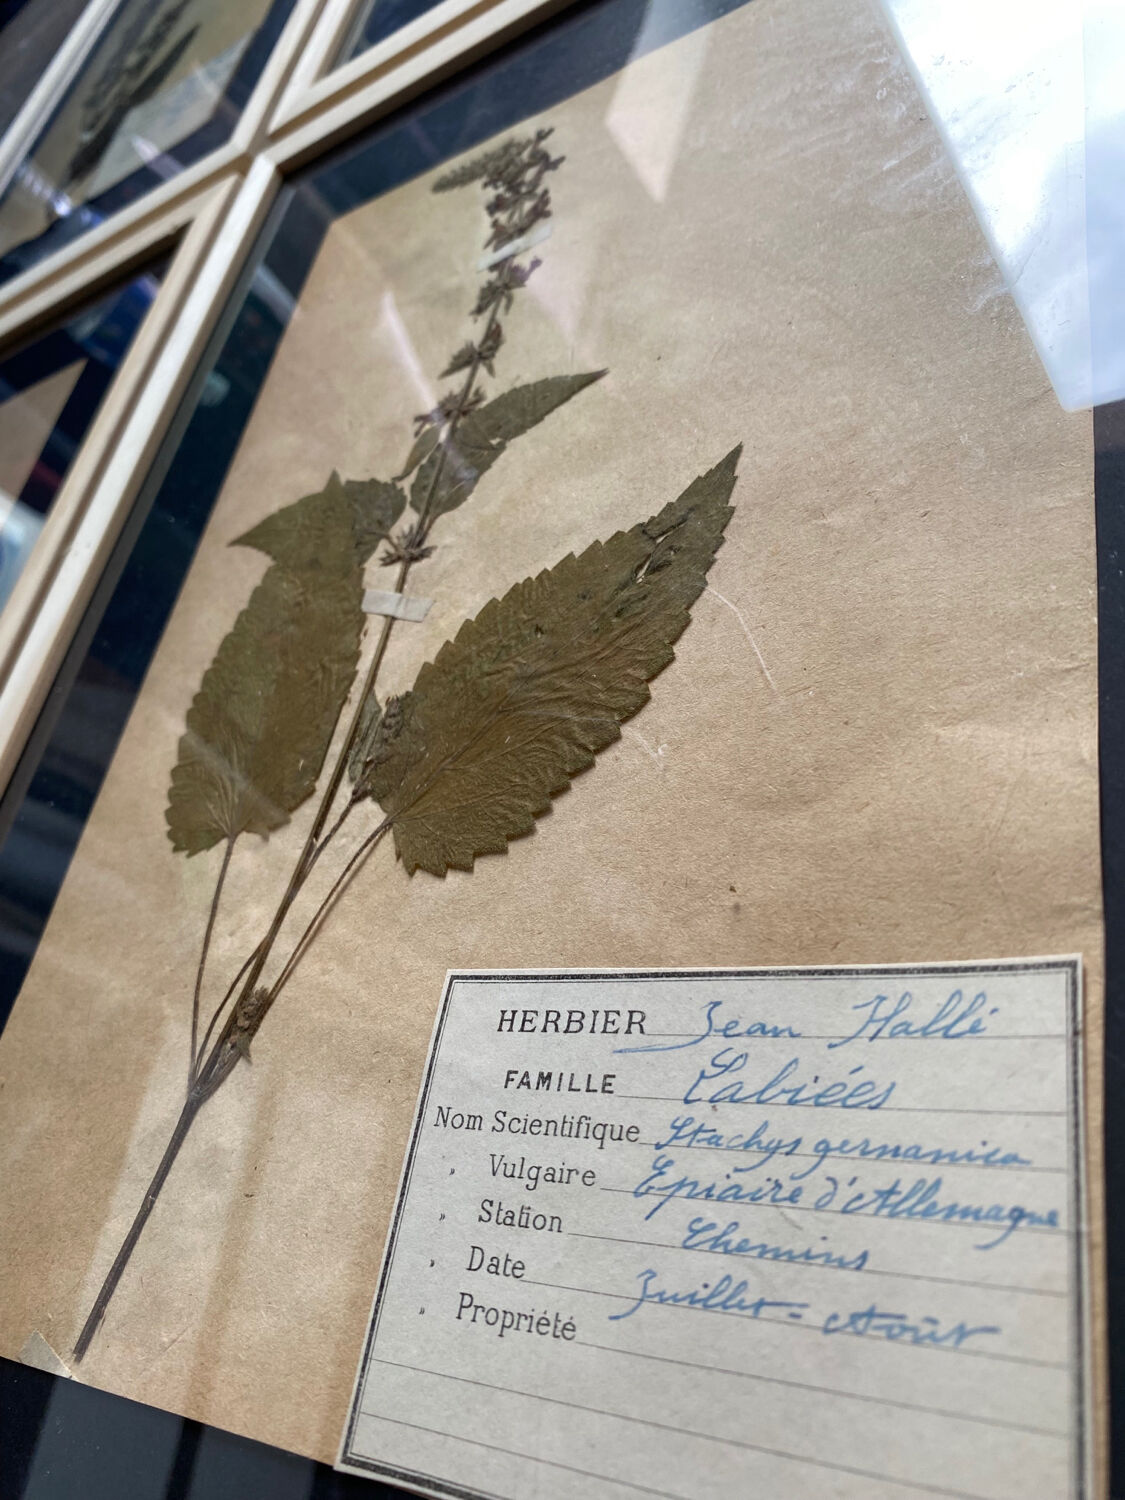 HERBIER Jean Hallé
FAMILLE Labiées
Nom Scientifique Stachys germanica
„ Vulgaire Epiaire d'Allemagne
„ Station Chemins
„ Date Juillet = Août
„ Propriété